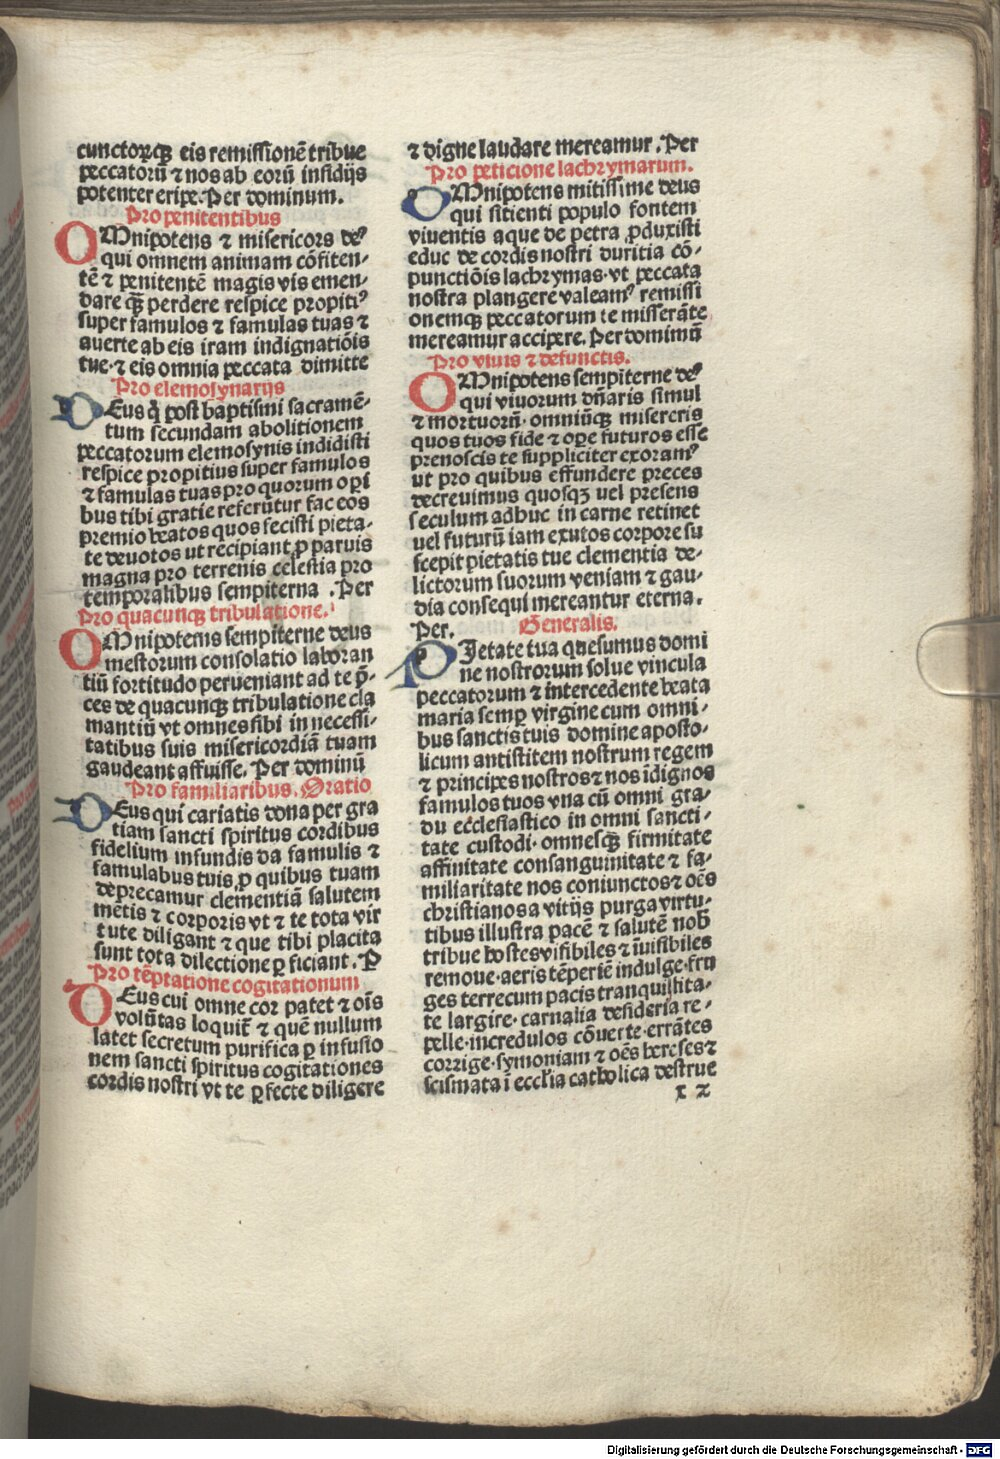 cunctorūqꝫ eis remissionē tribue
peccatorū ⁊ nos ab eorū insidijs
potenter eripe. Per dominum.
Pro penitentibus
OMnipotens ⁊ misericors deꝰ
qui omnem animam cōfiten-
tē ⁊ penitentē magis vis emen-
dare qꝫ perdere respice propitiꝰ
super famulos ⁊ famulas tuas ⁊
auerte ab eis iram indignatiōis
tue · ⁊ eis omnia peccata dimitte
Pro elemosynarijs
DEus q̇ post baptismi sacramē-
tum secundam abolitionem
peccatorum elemosynis indidisti
respice propitius super famulos
⁊ famulas tuas pro quorum oꝑi
bus tibi gratie referūtur fac eos
premio beatos quos fecisti pieta-
te deuotos ut recipiant ꝓ paruis
magna pro terrenis celestia pro
temporalibus sempiterna . Per
Pro quacunqꝫ tribulatione.
OMnipotens sempiterne deus
mestorum consolatio laboran
tiū fortitudo perueniant ad te p̄-
ces de quacunqꝫ tribulatione cla
mantiū vt omnes sibi in necessi-
tatibus suis misericordiā tuam
gaudeant affuisse. Per dominū
Pro familiaribus. Oratio
DEus qui cariatis dona per gra
tiam sancti spiritus cordibus
fidelium infundis da famulis ⁊
famulabus tuis ꝓ quibus tuam
deprecamur clementiā salutem
mētis ⁊ corporis vt ⁊ te tota vir
tute diligant ⁊ que tibi placita
sunt tota dilectione ꝑficiant . P
Pro tēptatione cogitationum
DEus cui omne cor patet ⁊ oīs
volūtas loquit̄ ⁊ quē nullum
latet secretum purifica ꝑ infusio
nem sancti spiritus cogitationes
cordis nostri vt te ꝑfecte diligere
⁊ digne laudare mereamur . Per
Pro peticione lachrymarum.
OMnipotens mitissime deus
qui sitienti populo fontem
viuentis aque de petra ꝓduxisti
educ de cordis nostri duritia cō-
punctiōis lachrymas · vt peccata
nostra plangere valeamꝰ remissi
onemqꝫ peccatorum te misserāte
mereamur accipere. Per dominū
Pro viuis ⁊ defunctis.
OMnipotens sempiterne deꝰ
qui viuorum dn̄aris simul
⁊ mortuorū · omniūqꝫ misereris
quos tuos fide ⁊ oꝑe futuros esse
prenoscis te suppliciter exoramꝰ
ut pro quibus effundere preces
decreuimus quosqꝫ uel presens
seculum adhuc in carne retinet
uel futurū iam exutos corpore su
scepit pietatis tue clementia de-
lictorum suorum veniam ⁊ gau-
dia consequi mereantur eterna.
Per. Generalis.
PIetate tua quesumus domi
ne nostrorum solue vincula
peccatorum ⁊ intercedente beata
maria semꝑ virgine cum omni-
bus sanctis tuis domine aposto-
licum antistitem nostrum regem
⁊ principes nostros ⁊ nos īdignos
famulos tuos vna cū omni gra-
du ecclesiastico in omni sancti-
tate custodi · omnesqꝫ firmitate
affinitate consanguinitate ⁊ fa-
miliaritate nos coniunctos ⁊ oēs
christianos a vitijs purga virtu-
tibus illustra pacē ⁊ salutē nob̄
tribue hostes visibiles ⁊ īuisibiles
remoue · aeris tēperiē indulge · fru
ges terrecum pacis tranquillita-
te largire · carnalia desideria re-
pelle · incredulos cōuerte · errātes
corrige · symoniam ⁊ oēs hereses ⁊
scismata ī eccl'ia catholica destrue
x 2
Digitalisierung gefördert durch die Deutsche Forschungsgemeinschaft - DFG